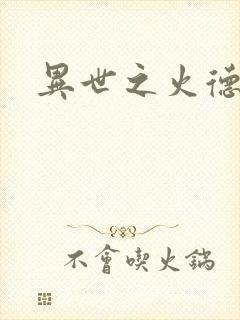 異世之火德
不會喫火鍋